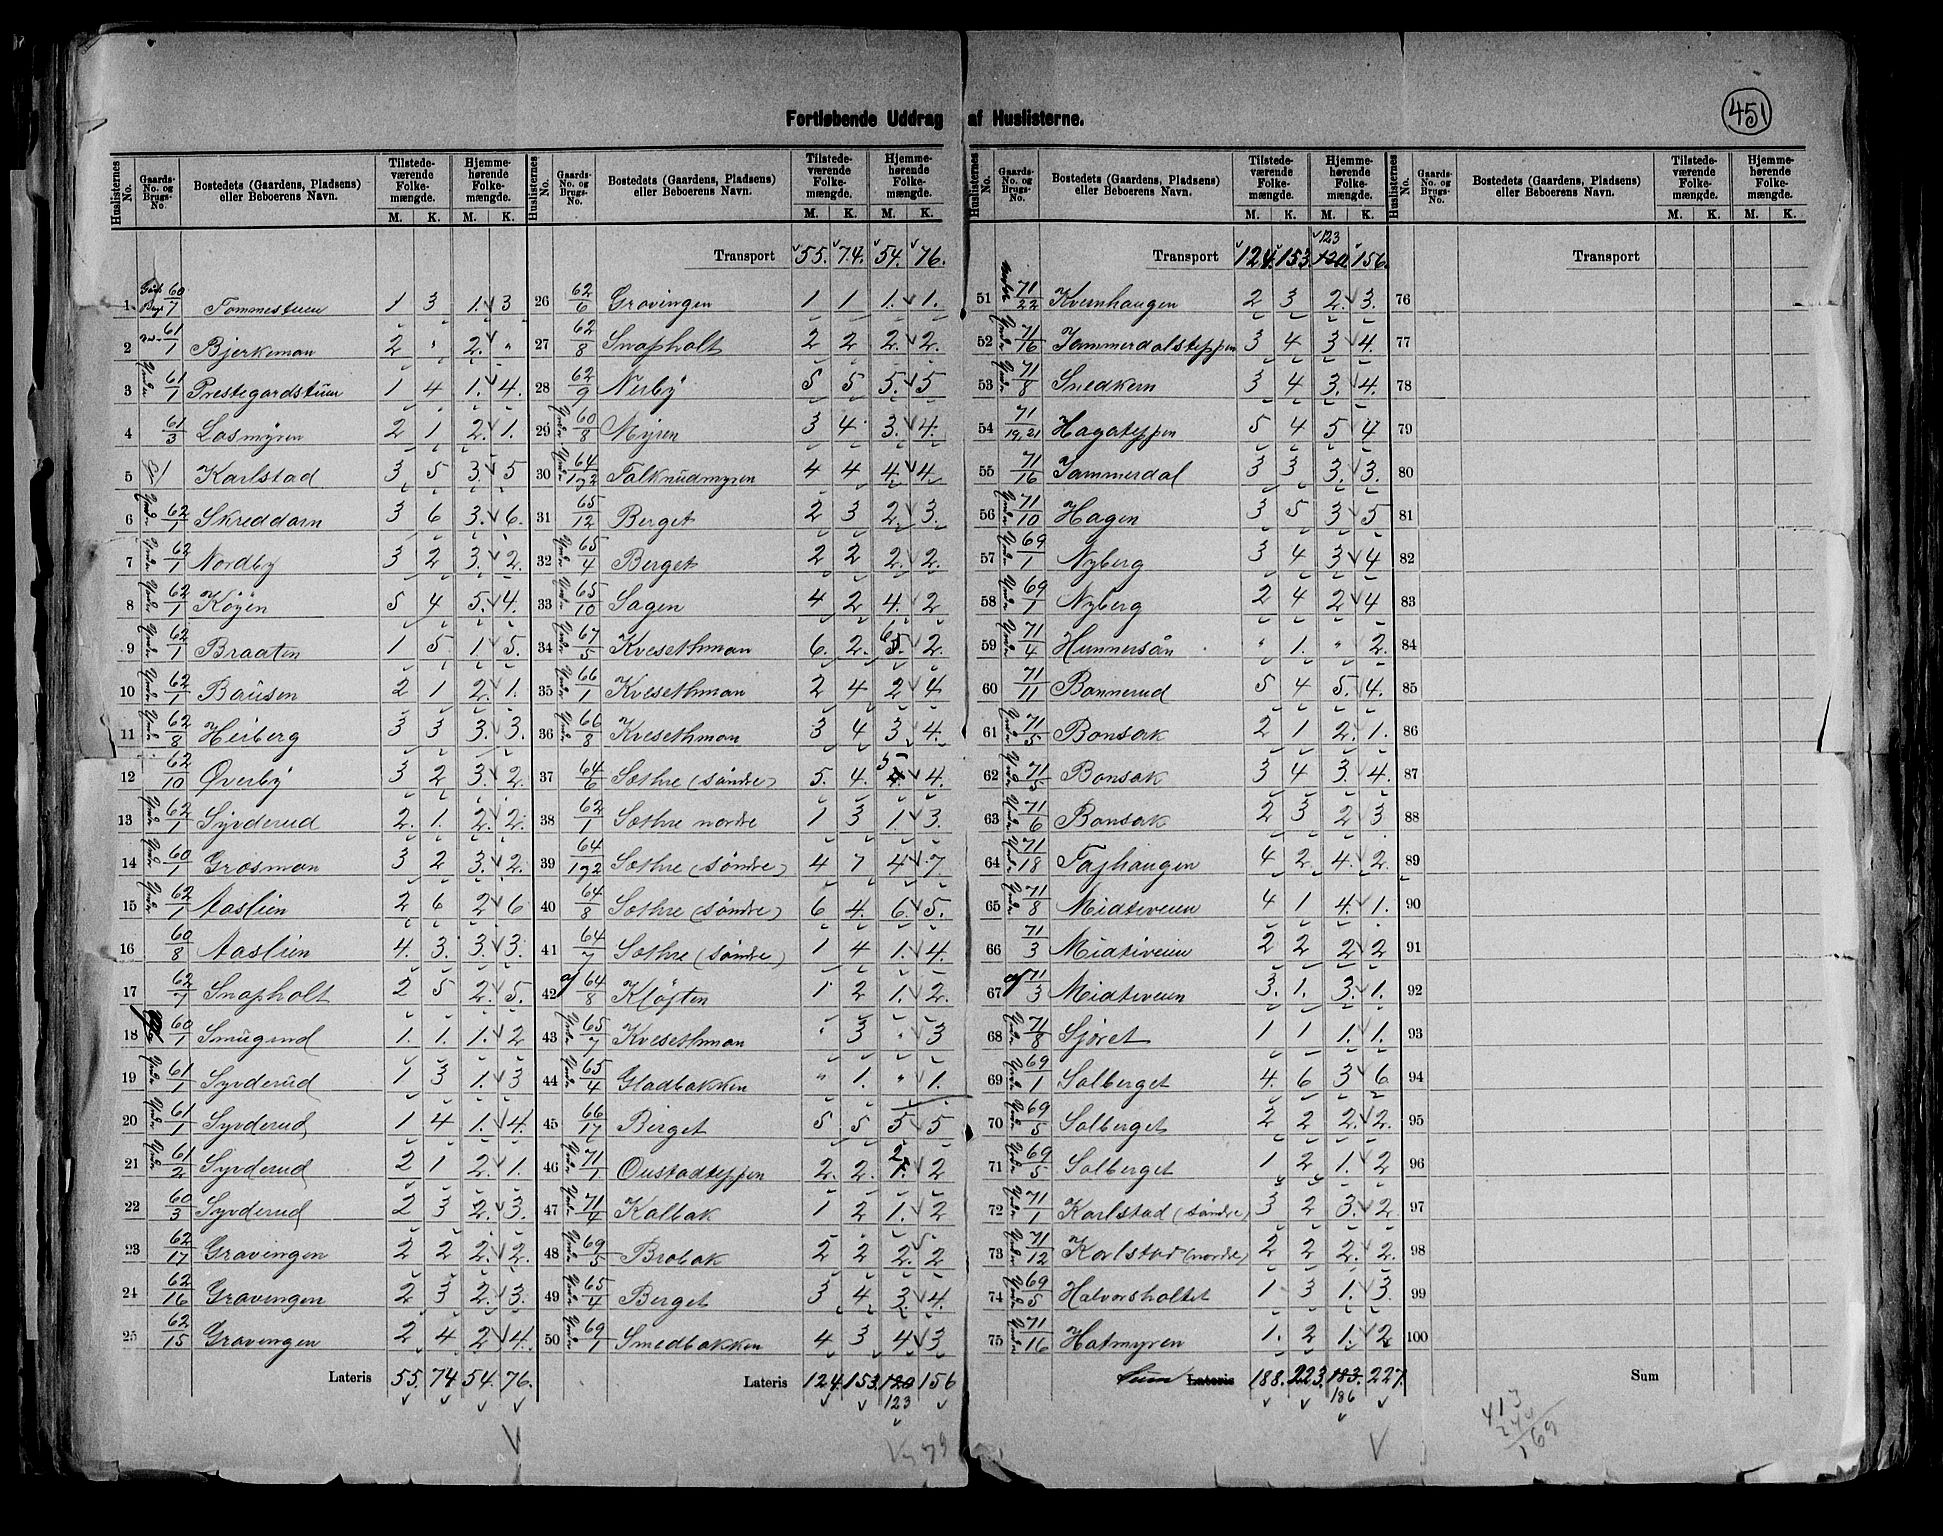 451
Fortløbende Uddrag af Huslisterne.
Huslisternes No. | Gaards-No. og Brugs-No. | Bostedets (Gaardens, Pladsens) eller Beboerens Navn. | Tilstedeværende Folkemængde. M. K. | Hjemmehørende Folkemængde. M. K.
1 60/7 Tommestuen 1 3 1. 3
2 61/1 Bjerkeman 2 " 2. "
3 Under 61/1 Prestegardstuen 1 4 1. 4.
4 61/3 Losmyren 2 1 2. 1.
5 Karlstad 3 5 3. 5
6 Under 62/1 Skreddarn 3 6 3. 6.
7 Under 62/1 Nordby 3 2 3. 2.
8 Under 62/1 Köyen 5 4 5. 4.
9 Under 62/1 Braaten 1 5. 1 5.
10 Under 62/1 Bausen 2 1 2. 1.
11 Under 62/8 Heiberg 3 3 3. 3.
12 62/10 Øverby 3 2 3. 2.
13 Under 62/1 Syverud 2. 1. 2. 2.
14 Under 60/1 Grosman 3 2 3. 2.
15 Under 62/1 Aaslien 2 6 2 6
16 60/8 Aaslien 4. 3. 3. 3.
17 62/7 Snapholt 2 5 2. 5.
18 60/1 Smugurud 1. 1. 1. 2
19 Under 61/1 Syverud 1 3 1. 3
20 Under 61/1 Syverud 1 4 1. 4.
21 Under 61/2 Syverud 2 1 2. 1.
22 60/3 Syverud 2 3 2. 3.
23 62/17 Gravingen 2 2 2. 2.
24 62/16 Gravingen 2 3 2. 3.
25 62/15 Gravingen 2 4 2 4.
Lateris 55. 74 54. 76.
Transport 55. 74. 54. 76.
26 62/6 Gravingen 1 1 1. 1.
27 62/8 Snapholt 2 2 2. 2.
28 62/9 Nerby 5 5 5. 5
29 Under 60/8 Myren 3 4 3. 4.
30 Under 64/1,2 Falknudmyren 4 4 4. 4.
31 65/12 Berget 2 3 2. 3.
32 Under 65/4 Berget 2 2 2. 2.
33 Under 65/10 Sagen 4 2 4. 2
34 Under 67/5 Kvesethman 6. 2. 5. 6 2.
35 Under 66/1 Kvesethman 2 4 2 4
36 Under 66/8 Kvesethman 3 4 3. 4.
37 64/6 Sothre (søndre) 5. 4. 4. 5 4.
38 62/1 Sothre nordre 1 3 1. 3.
39 64/1,2 Sothre (søndre) 4 7 4 7.
40 64/8 Sothre (søndre) 6 4. 6. 5.
41 64/7 Sothre (søndre) 1 4 1. 4.
42 af 64/8 Kløften 1 2 1. 2.
43 Under 65/7 Kvesethman " 3 " 3
44 Under 65/4 Gladbakken " 1. " 1.
45 66/17 Berget 5 5 5 5
46 Under 71/1 Oustadteppen 2. 2. 1. 2 2
47 Under 71/4 Kalbak 1 2 1. 2
48 Under 69/5 Brobak 2 2 2. 2
49 Under 65/4 Berget 3 4 3. 4.
50 Under 69/1 Smedbakken 4 3 4 3
Lateris 124. 153. 120 156
123
Transport 124. 153. 120 156.
123
51 71/22 Kvernhaugen 2 3 2. 3.
52 Under 71/16 Jammerdalsteppen 3 4 3 4.
53 Under 71/8 Snedkern 3 4 3. 4.
54 71/19,21 Hagateppen 5 4 5 4
55 71/16 Jammerdal 3 3 3. 3.
56 Under 71/10 Hagen 3 5 3 5
57 Under 69/1 Nyberg 3 4 3 4
58 Under 69/1 Nyberg 2 4 2 4
59 Under 71/4 Hunnersån " 1. " 2.
60 71/11 Bannerud 5 4 5. 4.
61 Under 71/5 Bonsak 2 1 2. 1.
62 Under 71/5 Bonsak 3 4 3. 4.
63 Under 71/6 Bonsak 2 3 2 3
64 Under 71/18 Fajhaugen 4 2 4. 2.
65 Under 71/8 Midtiveien 4 1 4. 1.
66 71/3 Midtiveien 2 2 2 2
67 af 71/3 Midtiveien 3. 1. 3. 1.
68 Under 71/8 Sjøret 1 1 1. 1.
69 Under 69/1 Solberget 4. 6 3 6
70 Under 69/5 Solberget 2 2 2. 2.
71 Under 69/5 Solberget 1 2 1. 2
72 Under 71/1 Karlstad (søndre) 3 2 3. 2.
73 Under 71/12 Karlstad (nordre) 2 2 2. 2.
74 Under 69/5 Halvorsholtet 1 3 1. 3.
75 Under 71/16 Hatmyren 1. 2 1. 2
Sum Lateris 188. 223. 183. 227.
186
Transport
76
77
78
79
80
81
82
83
84
85
86
87
88
89
90
91
92
93
94
95
96
97
98
99
100
Sum
413
169